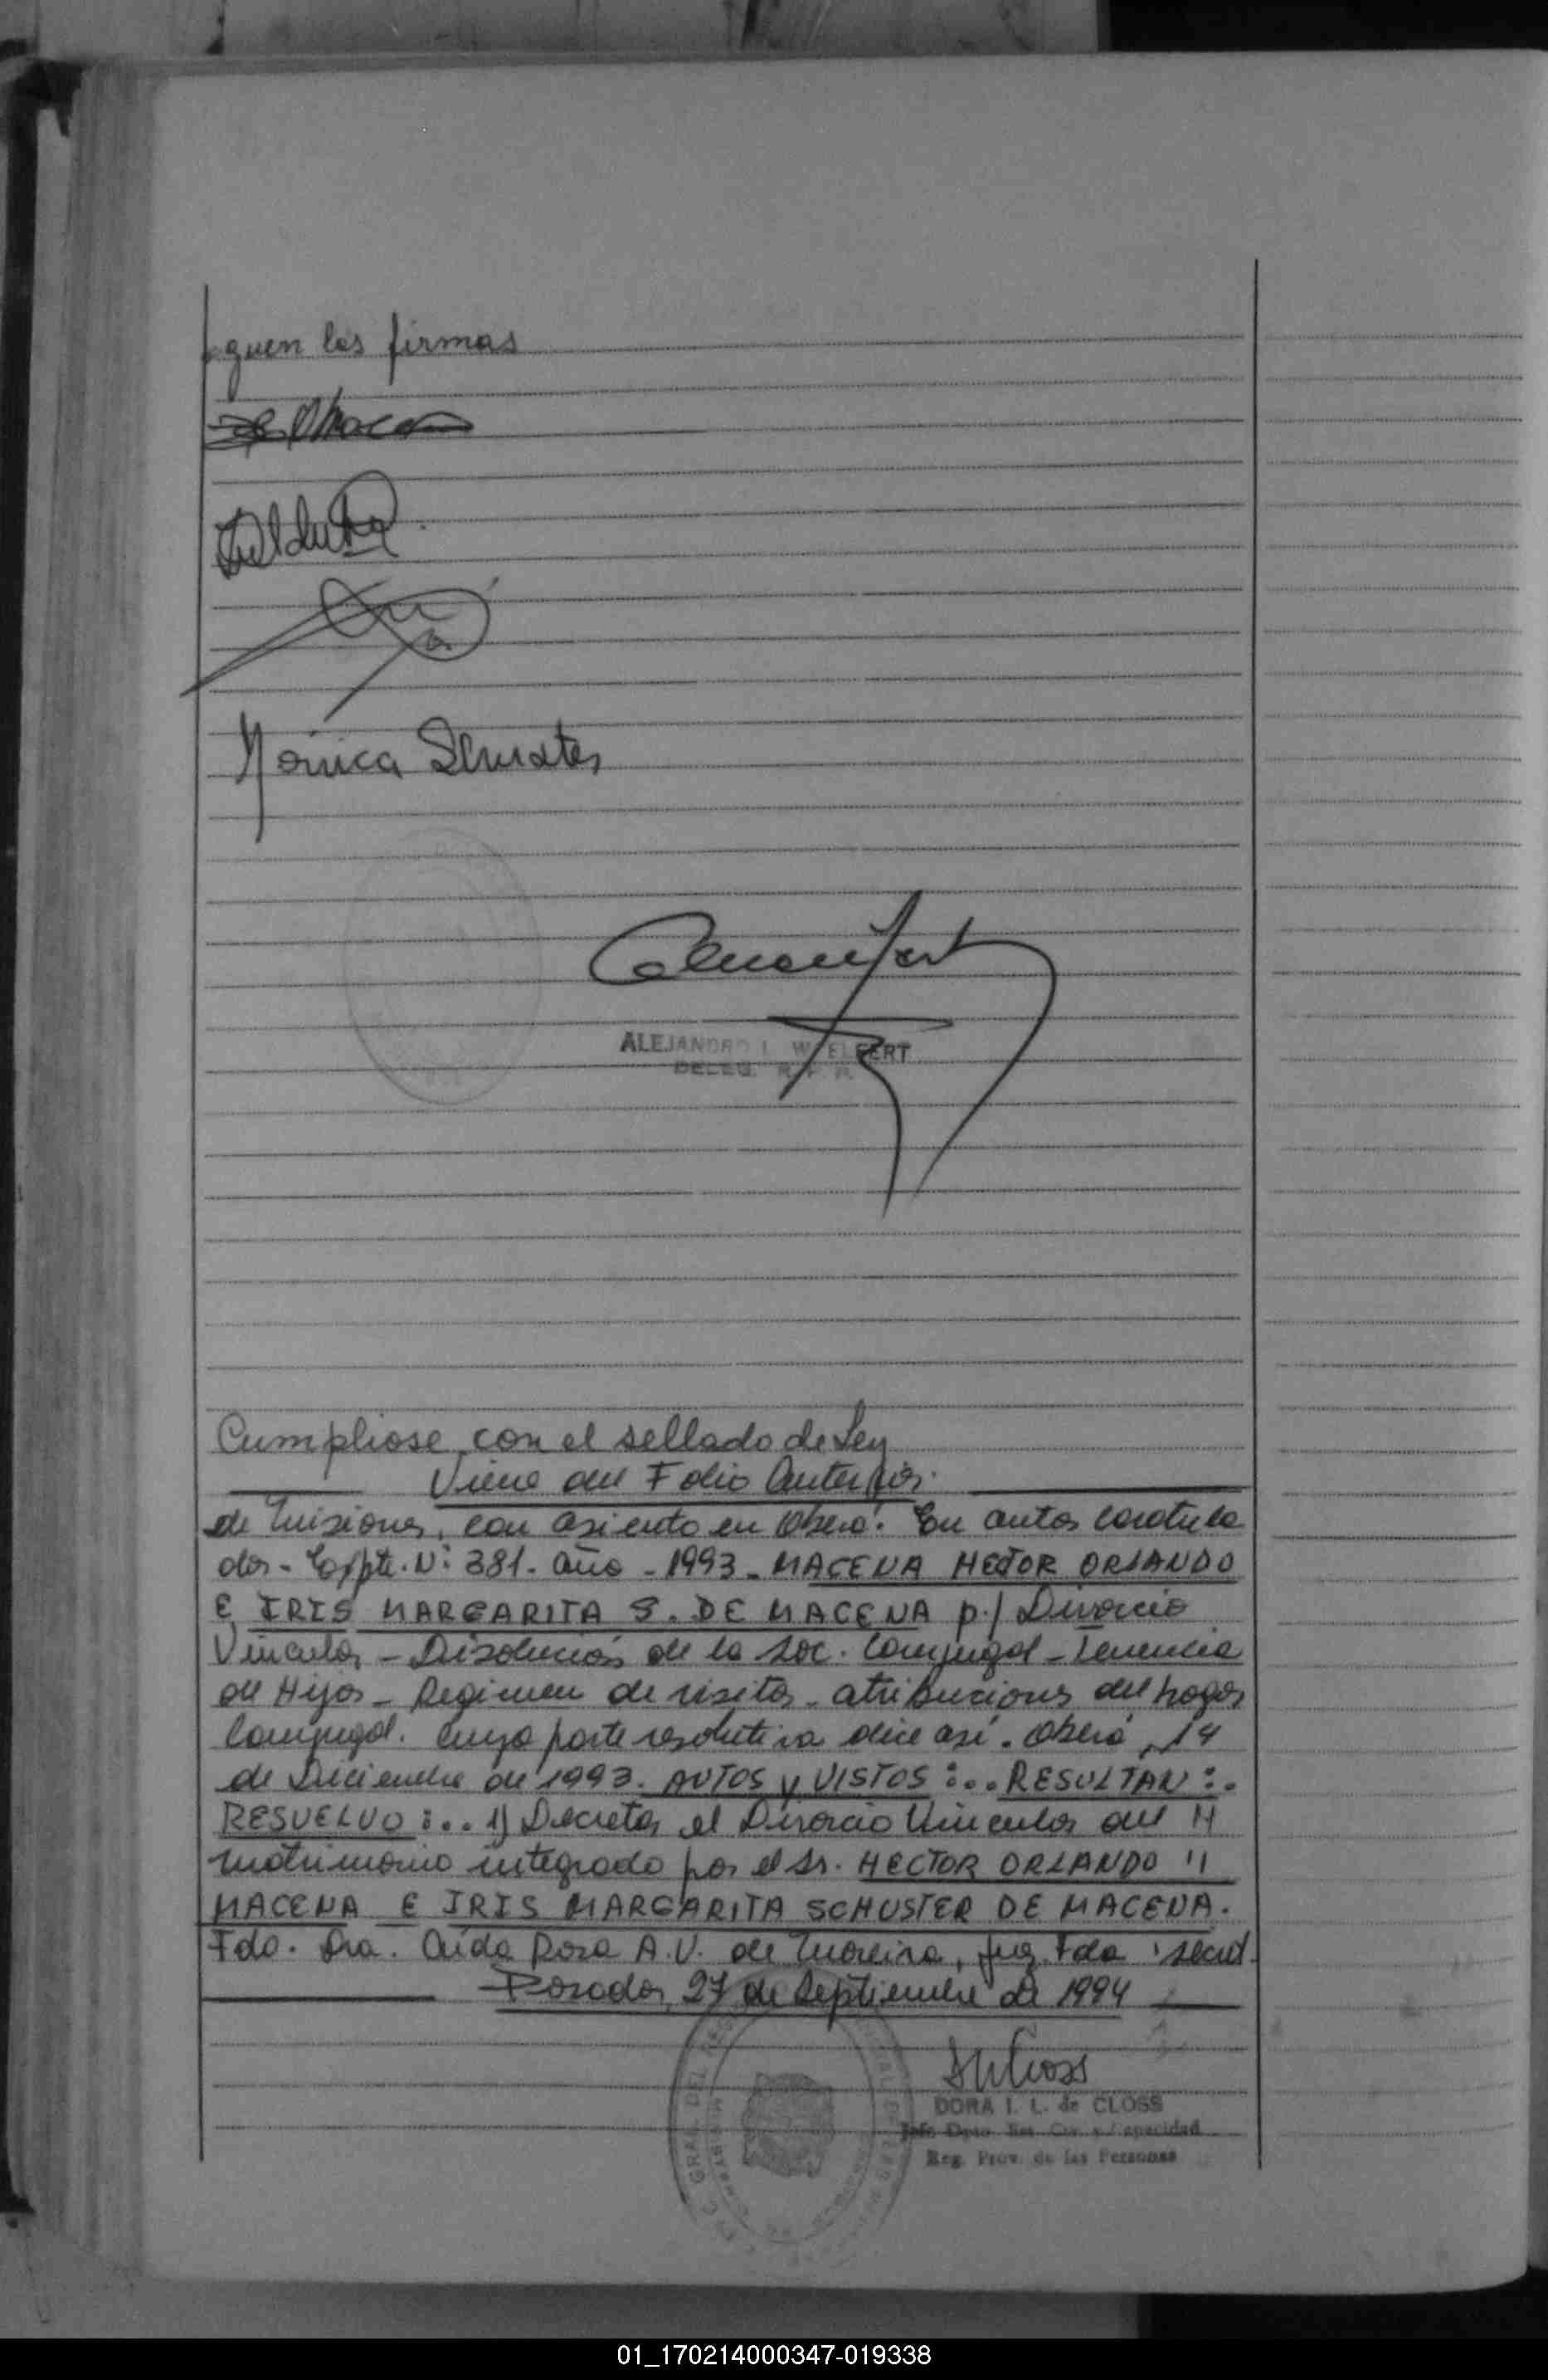 guen las firmas
Monica
ALEJANDRO I. WOELFERT
DELEG. R. P. P.
Cumpliose con el sellado de Ley
Viene del Folio Anterior.
de Misiones, con asiento en Oberá. En autos caratula
dos - Expte. Nº 381 - año - 1993 - MACENA HECTOR ORLANDO
E IRIS MARGARITA S. DE MACENA p./ Divorcio
Vincular - Disolución de la Soc. Conyugal - Tenencia
de Hijos - Regimen de visitas - atribuciones del hogar
Conyugal. Cuya parte resolutiva dice así. Oberá, 14
de Diciembre de 1993. AUTOS y VISTOS:... RESULTAN:.
RESUELVO:... 1) Decretar el Divorcio Vincular del
matrimonio integrado por el Sr. HECTOR ORLANDO "
MACENA E IRIS MARGARITA SCHUSTER DE MACENA.
Fdo. Dra. Aída Rosa A.V. de Moreira, Juez. Fdo Secret.
Posadas, 27 de Septiembre de 1994
DORA I. L. de CLOSS
Jefe Dpto. Est. Civ. y Capacidad
Reg. Prov. de las Personas
01_170214000347-019338